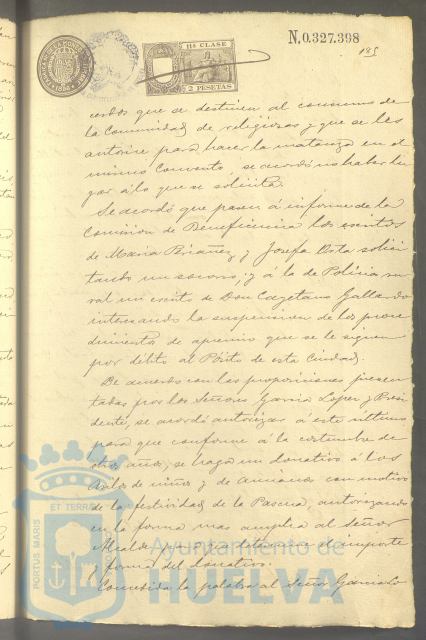 N.0.327.398
185
11ª CLASE
2 PESETAS
cerdos que se destinen al consumo de
la Comunidad de religiosas y que se les
autorice para hacer la matanza en el
mismo Convento, se acordó no haber lu
gar á lo que se solicita.
Se acordó que pasen á informe de la
Comision de Beneficencia los escritos
de Maria Periañez y Josefa Bota solici
tando un socorro; y á la de Policia ru
ral un escrito de Don Cayetano Gallardo
interesando la suspension de los proce
dimientos de apremio que se le siguen
por débito al Pósito de esta Ciudad.
De acuerdo con las proposiciones presen
tadas por los Señores Garcia Lopez y Presi
dente, se acordó autorizar á este último
para que conforme á la costumbre de
otros años, se haga un donativo á los
Asilos de niños y de ancianos con motivo
de la festividad de la Pascua, autorizando
en la forma mas amplia al Señor
Alcalde para determinar el importe
y forma del donativo.
Concedida la palabra al Señor Garcia Lo
ET TERRAE
PORTUS MARIS
Ayuntamiento de
HUELVA